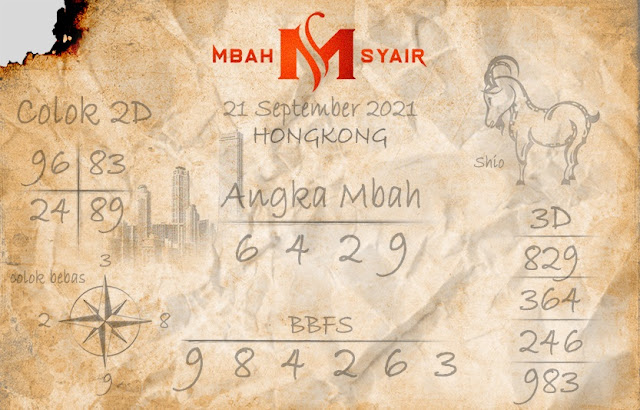 MBAH M SYAIR
Colok 2D
96 83
24 89
21 September 2021
HONGKONG
Shio
Angka Mbah
6 4 2 9
3D
829
364
246
983
colok bebas
3
2 8
9
BBFS
9 8 4 2 6 3